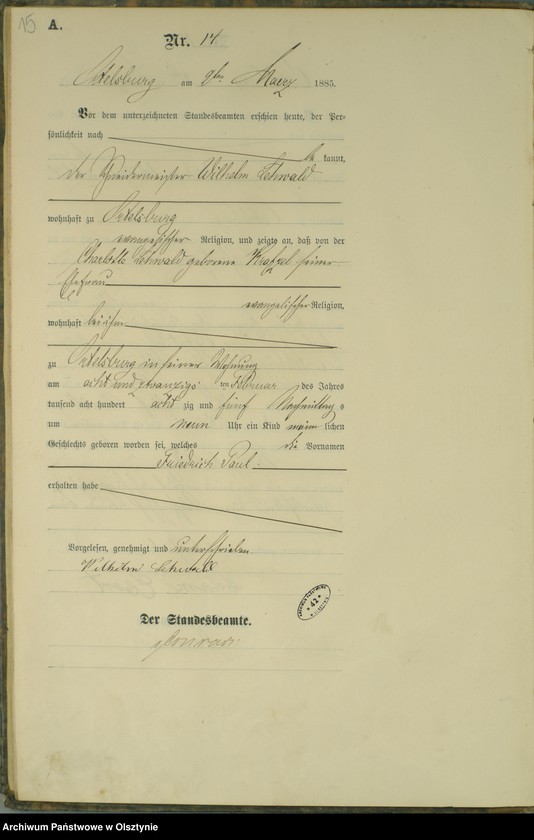 15
A.
Nr. 14
Ortelsburg am 2ten Maerz 1885.
Vor dem unterzeichneten Standesbeamten erschien heute, der Per-
sönlichkeit nach
be kannt,
der Schneidermeister Wilhelm Lehwald
wohnhaft zu Ortelsburg
evangelischer Religion, und zeigte an, daß von der
Charlotte Lehwald geborene seiner
Ehefrau
evangelischer Religion,
wohnhaft bei ihm
zu Ortelsburg in seiner Wohnung
am acht und zwanzigs ten Februar des Jahres
tausend acht hundert acht zig und fünf Nachmittags
um neun Uhr ein Kind männ lichen
Geschlechts geboren worden sei, welches die Vornamen
Friedrich Paul
erhalten habe
Vorgelesen, genehmigt und unterschrieben
Wilhelm Lehwald
42
Der Standesbeamte.
Archiwum Państwowe w Olsztynie